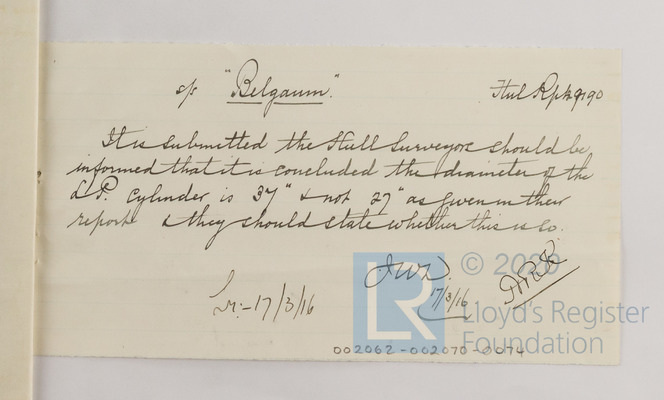 s/s "Belgaum". Hul Rpt
It is submitted the Hull Surveyors should be
informed that it is concluded the diameter of the
L.P. Cylinder is 37" & not 27" as given in their
report & they should state whether this is so.
JWD.
17/3/16
Lr:- 17/3/16
LR © 2020
Lloyd's Register
Foundation
002062-002070-0074